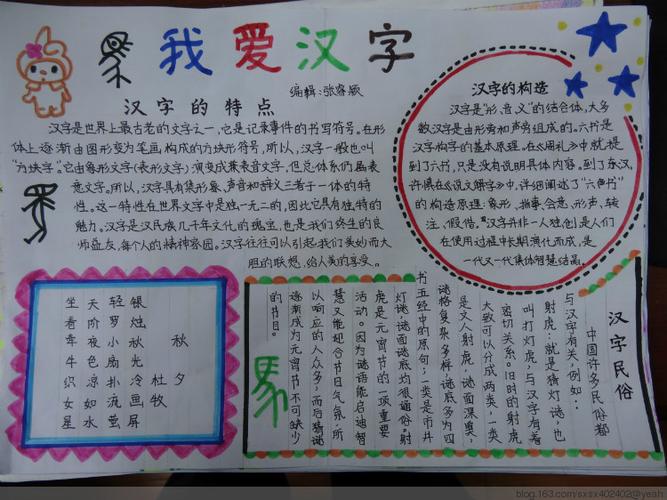 我爱汉字
编辑:张睿
汉字的特点
汉字是世界上最古老的文字之一,它是记录事件的书写符号。在形
体上逐渐由图形变为笔画构成的方块形符号。所以,汉字一般也叫
"方块字"。它由象形文字(表形文字)演变成兼表音文字,但总体系仍属表
意文字。所以,汉字具有集形象、声音和辞义三者于一体的特
性。这一特性在世界文字中是独一无二的,因此它具有独特的
魅力。汉字是汉民族几千年文化的瑰宝,也是我们终生的良
师益友,每个人的精神家园。汉字往往可以引起我们美妙而大
胆的联想,给人美的享受。
汉字的构造
汉字是"形、音、义"的结合体,大多
数汉字是由形旁和声旁组成的。六书是
汉字构字的基本原理,在《周礼》中就提
到了六书,只是没有说明具体内容。到了东汉,
许慎在《说文解字》中,详细阐述了"六书"
的构造原理:象形、指事、会意、形声、转
注、假借。汉字并非一人独创,是人们
在使用过程中长期演化而成,是
一代又一代集体智慧结晶。
秋夕
杜牧
银烛秋光冷画屏
轻罗小扇扑流萤
天阶夜色凉如水
坐看牵牛织女星
汉字民俗
中国许多民俗都
与汉字有关,例如:
射虎:就是猜灯谜,也
叫打灯虎,与汉字有着
密切关系。旧时的射虎
大致可以分成两类,一类
是文人射虎,谜面深奥,
谜格复杂多样,谜底多为四
书五经中的原句;一类是市井
灯谜,谜面谜底均很通俗。射
虎是元宵节的一项重要
活动。因为谜语能启迪智
慧又能迎合节日气氛,所
以响应的人众多,而后猜谜
逐渐成为元宵节不可缺少
的节目。
blog.163.com/sxsx402402@yeah